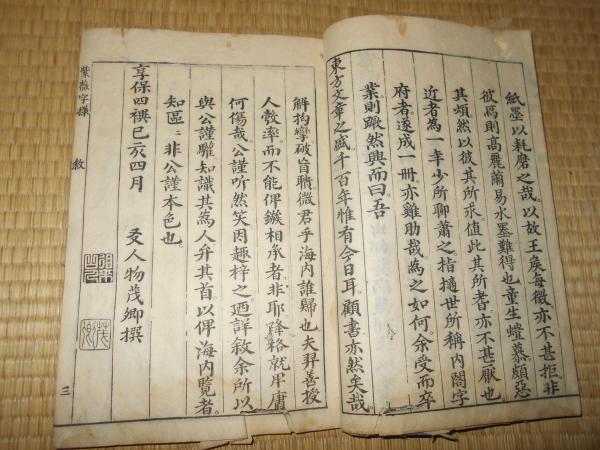 紙墨以耗磨之哉以故王矦每徵亦不甚拒非
彼焉則高麗繭易水墨難得也童生 慕頗惡
其煩然以彼其所求值此其所耆亦不甚厭也
近者為一年少所聊蕭之指擿世所稱内閣字
府者遂成一冊亦雞肋哉為之如何余受而卒
業則蹶然興而曰吾
東方文章之盛千百年惟有今日耳顧書亦然矣哉
解拘攣破盲聵微君乎海内誰歸也夫羿善授
人彀率而不能俾鏃相承者非耶降格就犀庸
何傷哉公謹听然笑因趣梓之廼詳敘余所以
與公謹驩知識其為人弁其首以俾海内覧者
知區〻非公謹本色也
享保四禩己亥四月
友人物茂卿撰
紫薇字樣
敘
三